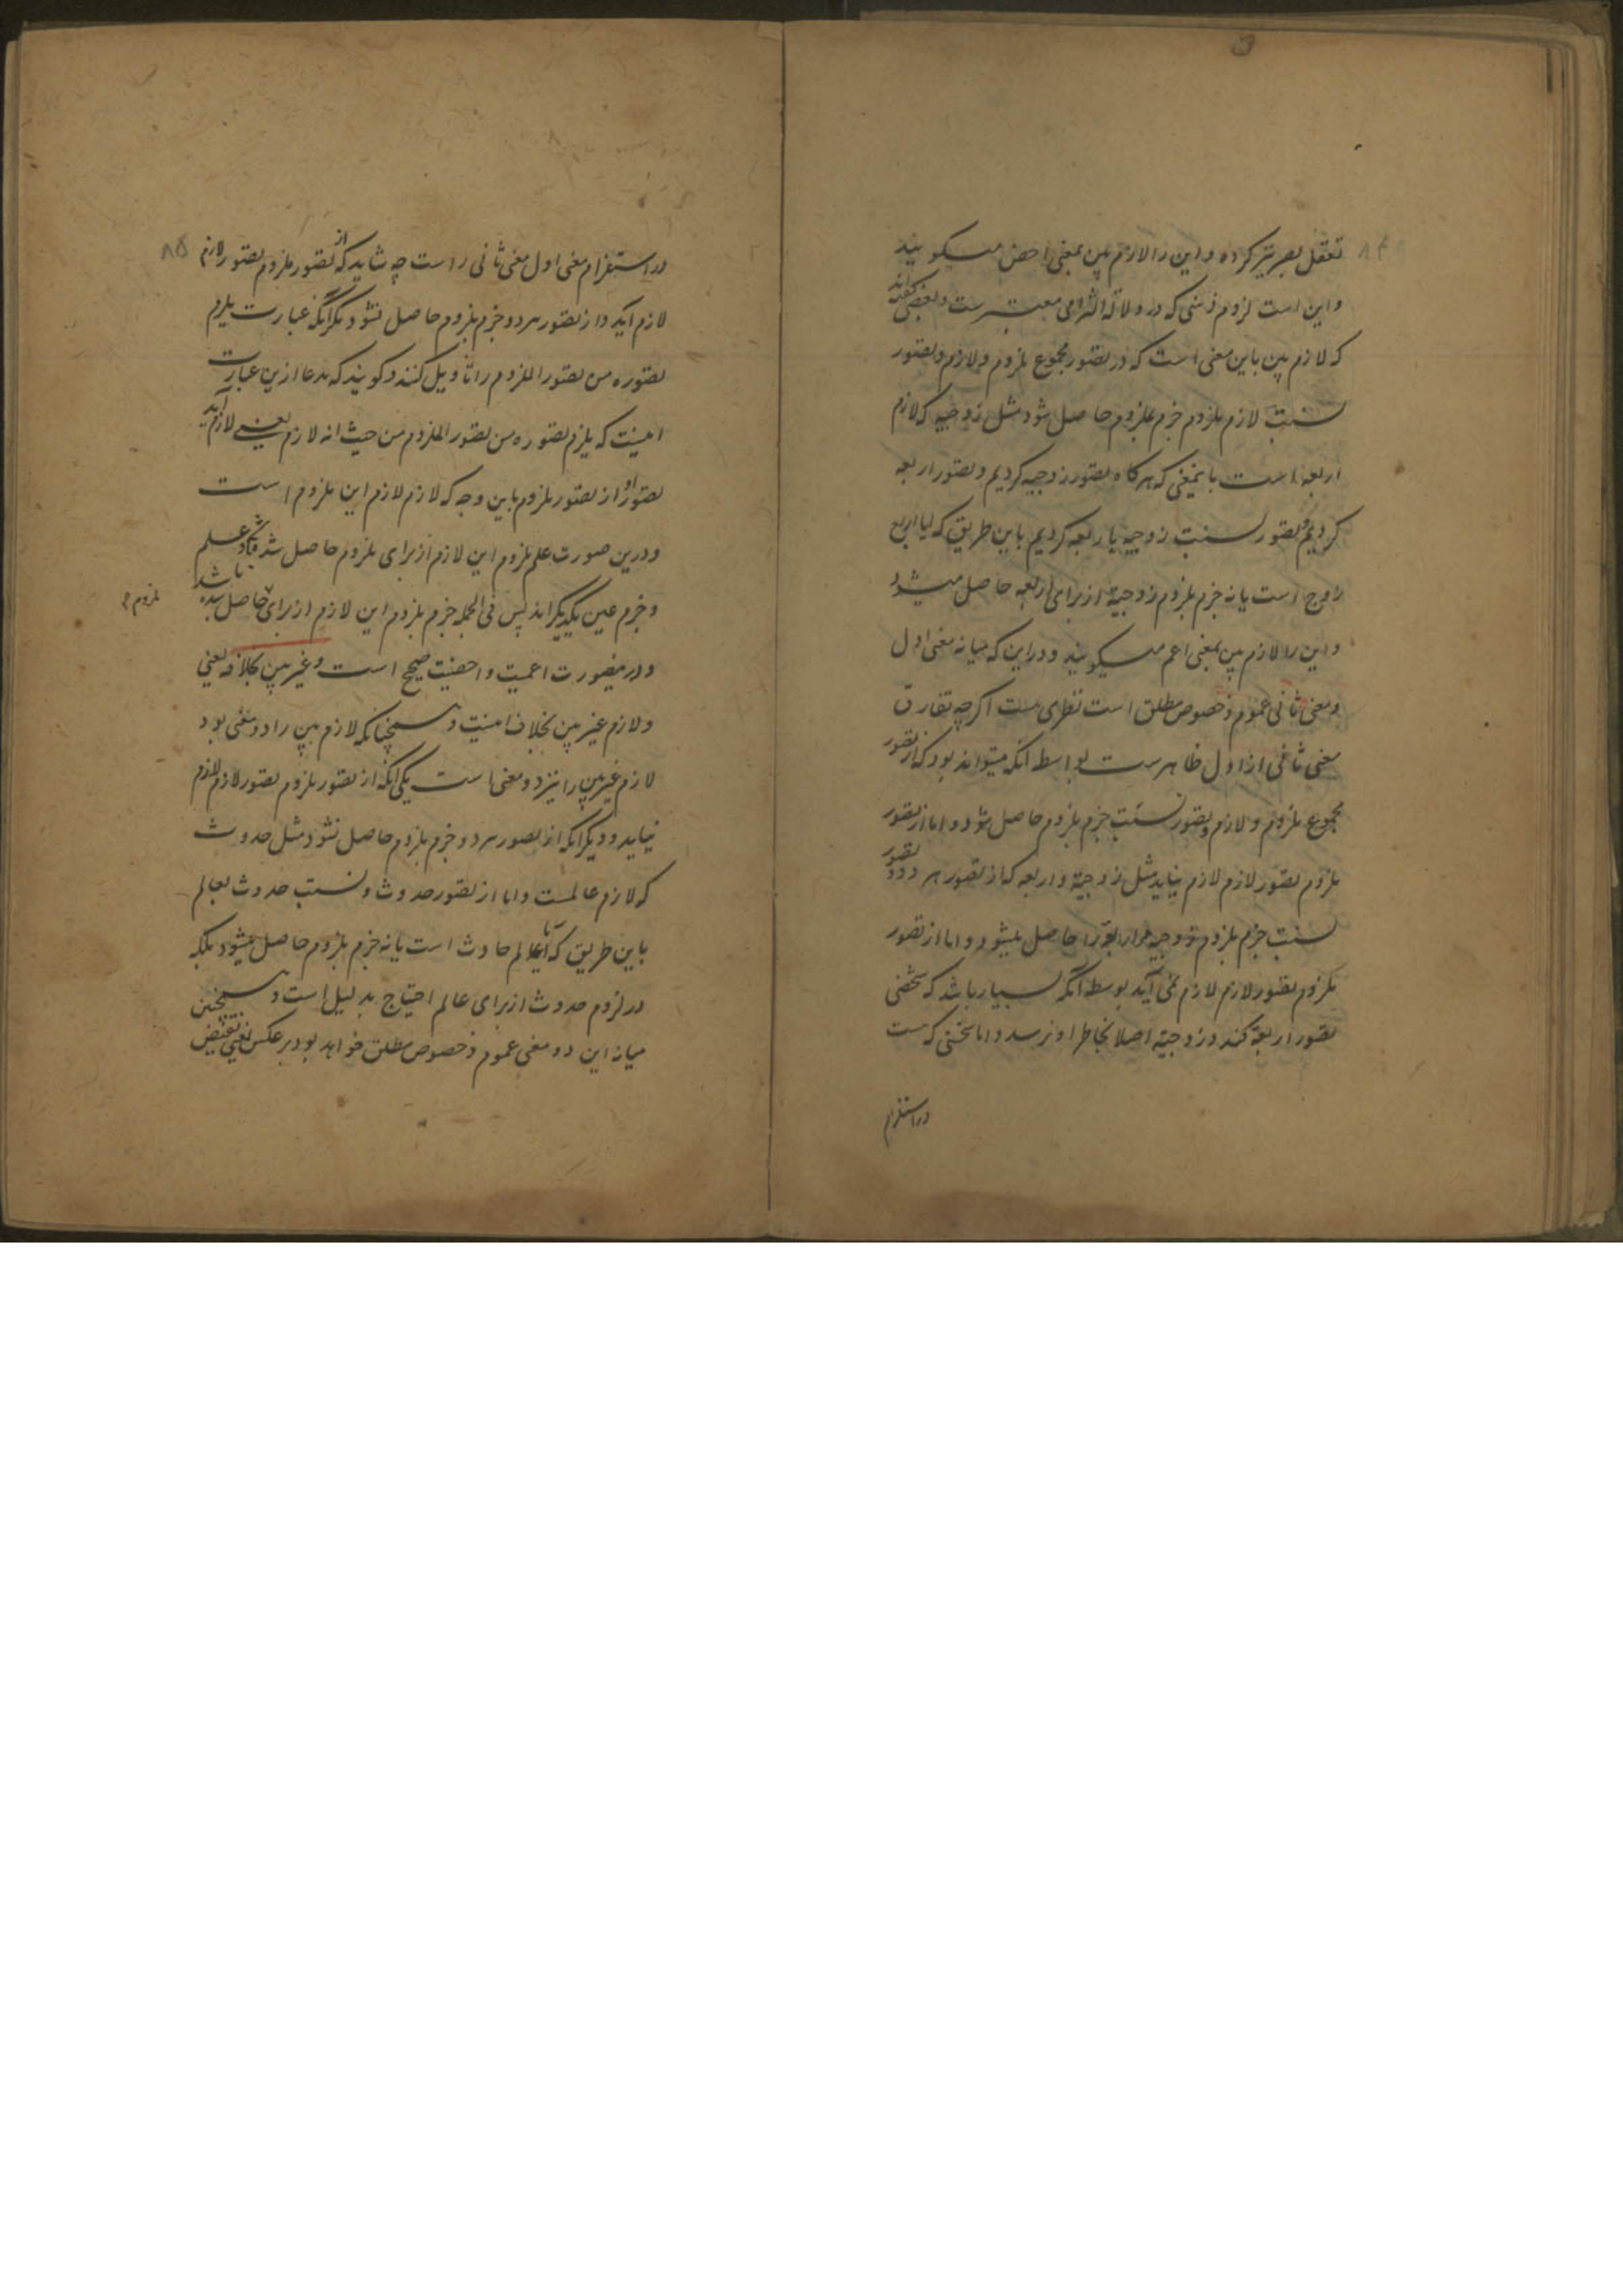 تعقل بصر نیز کرده و این را لازم بین بمعنی اخص میگویند
و این است لزوم ذهنی که در دلالة التزامی معتبرست و بعضی گفته اند
که لازم بین باین معنی است که در تصور مجموع ملزوم و لازم و تصور
نسبت لازم بملزوم جزم بلزوم حاصل شود مثل زوجیه که لازم
اربعه است باینمعنی که هرگاه تصور زوجیه کردیم و تصور اربعه
کردیم و تصور نسبت زوجیه باربعه کردیم باین طریق که آیا اربع
زوج است یا نه جزم بلزوم زوجیة از برای اربعه حاصل میشود
و این را لازم بین بمعنی اعم میگویند و در این که میانه معنی اول
و معنی ثانی عموم و خصوص مطلق است نظری هست اگرچه تفارق
معنی ثانی از اول ظاهرست بواسطه آنکه میتواند بود که از تصور
مجموع ملزوم و لازم و تصور نسبت جزم بلزوم حاصل شود و اما از تصور
ملزوم تصور لازم لازم نیاید مثل زوجیة و اربعه که از تصور هر دو و تصور
نسبت جزم بلزوم زوجیه مر اربعه را حاصل میشود و اما از تصور
ملزوم تصور لازم لازم نمی آید بواسطه آنکه بسیار باشد که شخصی
تصور اربعة کند و زوجیة اصلا بخاطر او نرسد و اما سخنی که هست
در استلزام
۸۵
در استلزام معنی اول معنی ثانی راست چه شاید که از تصور ملزوم تصور لازم
لازم آید و از تصور هر دو جزم بلزوم حاصل نشود مگر آنکه عبارت یلزم
تصوره من تصور الملزوم را تاویل کنند و گویند که مدعا ازین عبارت
اینست که یلزم تصوره من تصور الملزوم من حیث انه لازم یعنی لازم آید
تصور او از تصور ملزوم باین وجه که لازم لازم این ملزوم است
و درین صورت علم بلزوم این لازم از برای ملزوم حاصل شد علم
و جزم عین یکدیگراند پس فی الجمله جزم بلزوم این لازم از برای حاصل شده باشد
ملزوم
و درینصورت اعمیت و اخصیت صحیح است و غیر بین بخلافه یعنی
و لازم غیر بین بخلاف اینست و همچنانکه لازم بین را دو معنی بود
لازم غیر بین را نیز دو معنی است یکی آنکه از تصور ملزوم تصور لازم لازم
نیاید و دیگر آنکه از تصور هر دو جزم بلزوم حاصل نشود مثل حدوث
که لازم عالمست و اما از تصور حدوث و نسبت حدوث بعالم
باین طریق که آیا عالم حادث است یا نه جزم بلزوم حاصل نمیشود بلکه
در لزوم حدوث از برای عالم احتیاج بدلیل است و همچنین
میان این دو معنی عموم و خصوص مطلق خواهد بود بر عکس یعنی نقیض